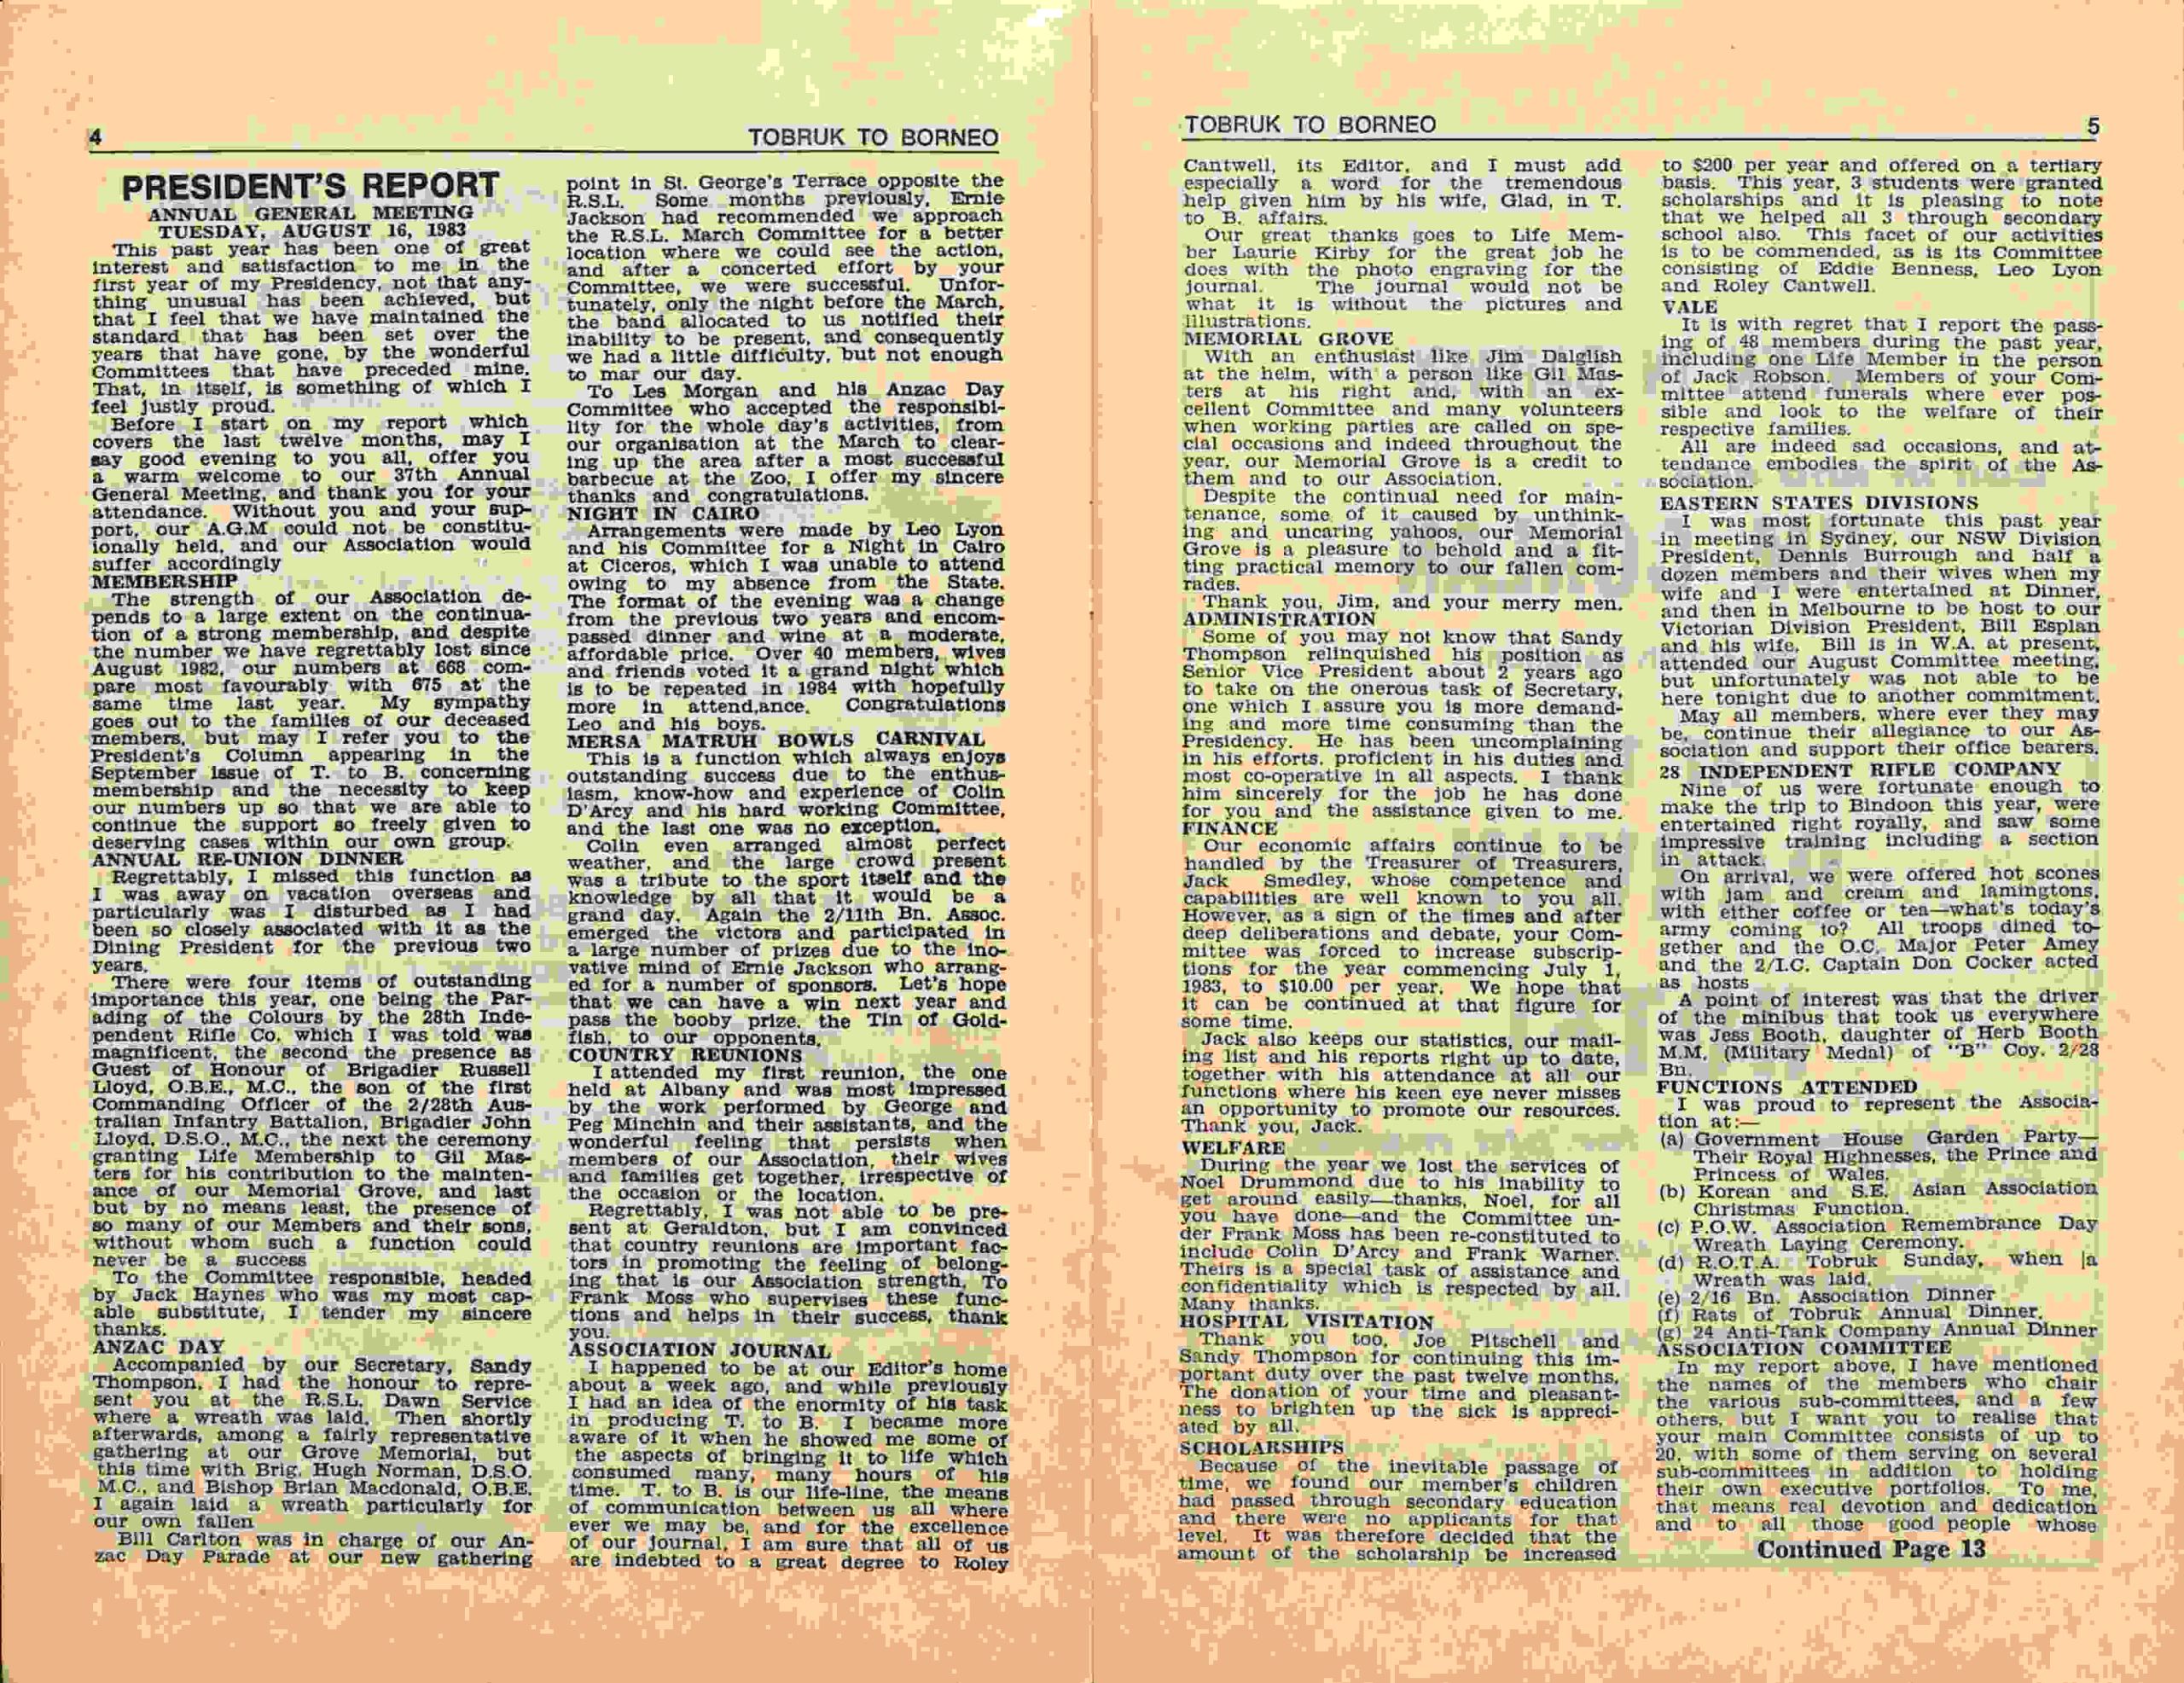 4
TOBRUK TO BORNEO
PRESIDENT'S REPORT
ANNUAL GENERAL MEETING
TUESDAY, AUGUST 16, 1983
This past year has been one of great
interest and satisfaction to me in the
first year of my Presidency, not that any-
thing unusual has been achieved, but
that I feel that we have maintained the
standard that has been set over the
years that have gone, by the wonderful
Committees that have preceded mine.
That, in itself, is something of which I
feel justly proud.
Before I start on my report which
covers the last twelve months, may I
say good evening to you all, offer you
a warm welcome to our 37th Annual
General Meeting, and thank you for your
attendance. Without you and your sup-
port, our A.G.M could not be constitu-
ionally held, and our Association would
suffer accordingly
MEMBERSHIP
The strength of our Association de-
pends to a large extent on the continua-
tion of a strong membership, and despite
the number we have regrettably lost since
August 1982, our numbers at 668 com-
pare most favourably with 675 at the
same time last year. My sympathy
goes out to the families of our deceased
members, but may I refer you to the
President's Column appearing in the
September issue of T. to B. concerning
membership and the necessity to keep
our numbers up so that we are able to
continue the support so freely given to
deserving cases within our own group.
ANNUAL RE-UNION DINNER
Regrettably, I missed this function as
I was away on vacation overseas and
particularly was I disturbed as I had
been so closely associated with it as the
Dining President for the previous two
years.
There were four items of outstanding
importance this year, one being the Par-
ading of the Colours by the 28th Inde-
pendent Rifle Co. which I was told was
magnificent, the second the presence as
Guest of Honour of Brigadier Russell
Lloyd, O.B.E., M.C., the son of the first
Commanding Officer of the 2/28th Aus-
tralian Infantry Battalion, Brigadier John
Lloyd, D.S.O., M.C., the next the ceremony
granting Life Membership to Gil Mas-
ters for his contribution to the mainten-
ance of our Memorial Grove, and last
but by no means least, the presence of
so many of our Members and their sons,
without whom such a function could
never be a success
To the Committee responsible, headed
by Jack Haynes who was my most cap-
able substitute, I tender my sincere
thanks.
ANZAC DAY
Accompanied by our Secretary, Sandy
Thompson, I had the honour to repre-
sent you at the R.S.L. Dawn Service
where a wreath was laid. Then shortly
afterwards, among a fairly representative
gathering at our Grove Memorial, but
this time with Brig. Hugh Norman, D.S.O.
M.C., and Bishop Brian Macdonald, O.B.E.
I again laid a wreath particularly for
our own fallen
Bill Carlton was in charge of our An-
zac Day Parade at our new gathering
point in St. George's Terrace opposite the
R.S.L. Some months previously, Ernie
Jackson had recommended we approach
the R.S.L. March Committee for a better
location where we could see the action,
and after a concerted effort by your
Committee, we were successful. Unfor-
tunately, only the night before the March,
the band allocated to us notified their
inability to be present, and consequently
we had a little difficulty, but not enough
to mar our day.
To Les Morgan and his Anzac Day
Committee who accepted the responsibi-
lity for the whole day's activities, from
our organisation at the March to clear-
ing up the area after a most successful
barbecue at the Zoo, I offer my sincere
thanks and congratulations.
NIGHT IN CAIRO
Arrangements were made by Leo Lyon
and his Committee for a Night in Cairo
at Ciceros, which I was unable to attend
owing to my absence from the State.
The format of the evening was a change
from the previous two years and encom-
passed dinner and wine at a moderate,
affordable price. Over 40 members, wives
and friends voted it a grand night which
is to be repeated in 1984 with hopefully
more in attend,ance. Congratulations
Leo and his boys.
MERSA MATRUH BOWLS CARNIVAL
This is a function which always enjoys
outstanding success due to the enthus-
iasm, know-how and experience of Colin
D'Arcy and his hard working Committee,
and the last one was no exception.
Colin even arranged almost perfect
weather, and the large crowd present
was a tribute to the sport itself and the
knowledge by all that it would be a
grand day. Again the 2/11th Bn. Assoc.
emerged the victors and participated in
a large number of prizes due to the ino-
vative mind of Ernie Jackson who arrang-
ed for a number of sponsors. Let's hope
that we can have a win next year and
pass the booby prize, the Tin of Gold-
fish, to our opponents.
COUNTRY REUNIONS
I attended my first reunion, the one
held at Albany and was most impressed
by the work performed by George and
Peg Minchin and their assistants, and the
wonderful feeling that persists when
members of our Association, their wives
and families get together, irrespective of
the occasion or the location.
Regrettably, I was not able to be pre-
sent at Geraldton, but I am convinced
that country reunions are important fac-
tors in promoting the feeling of belong-
ing that is our Association strength. To
Frank Moss who supervises these func-
tions and helps in their success, thank
you.
ASSOCIATION JOURNAL
I happened to be at our Editor's home
about a week ago, and while previously
I had an idea of the enormity of his task
in producing T. to B. I became more
aware of it when he showed me some of
the aspects of bringing it to life which
consumed many, many hours of his
time. T. to B. is our life-line, the means
of communication between us all where
ever we may be, and for the excellence
of our journal, I am sure that all of us
are indebted to a great degree to Roley
TOBRUK TO BORNEO
5
Cantwell, its Editor, and I must add
especially a word for the tremendous
help given him by his wife, Glad, in T.
to B. affairs.
Our great thanks goes to Life Mem-
ber Laurie Kirby for the great job he
does with the photo engraving for the
journal. The journal would not be
what it is without the pictures and
illustrations.
MEMORIAL GROVE
With an enthusiast like Jim Dalglish
at the helm, with a person like Gil Mas-
ters at his right and, with an ex-
cellent Committee and many volunteers
when working parties are called on spe-
cial occasions and indeed throughout the
year, our Memorial Grove is a credit to
them and to our Association.
Despite the continual need for main-
tenance, some of it caused by unthink-
ing and uncaring yahoos, our Memorial
Grove is a pleasure to behold and a fit-
ting practical memory to our fallen com-
rades.
Thank you, Jim, and your merry men.
ADMINISTRATION
Some of you may not know that Sandy
Thompson relinquished his position as
Senior Vice President about 2 years ago
to take on the onerous task of Secretary,
one which I assure you is more demand-
ing and more time consuming than the
Presidency. He has been uncomplaining
in his efforts, proficient in his duties and
most co-operative in all aspects. I thank
him sincerely for the job he has done
for you and the assistance given to me.
FINANCE
Our economic affairs continue to be
handled by the Treasurer of Treasurers,
Jack Smedley, whose competence and
capabilities are well known to you all.
However, as a sign of the times and after
deep deliberations and debate, your Com-
mittee was forced to increase subscrip-
tions for the year commencing July 1,
1983, to $10.00 per year. We hope that
it can be continued at that figure for
some time.
Jack also keeps our statistics, our mail-
ing list and his reports right up to date,
together with his attendance at all our
functions where his keen eye never misses
an opportunity to promote our resources.
Thank you, Jack.
WELFARE
During the year we lost the services of
Noel Drummond due to his inability to
get around easily—thanks, Noel, for all
you have done—and the Committee un-
der Frank Moss has been re-constituted to
include Colin D'Arcy and Frank Warner.
Theirs is a special task of assistance and
confidentiality which is respected by all.
Many thanks.
HOSPITAL VISITATION
Thank you too, Joe Pitschell and
Sandy Thompson for continuing this im-
portant duty over the past twelve months.
The donation of your time and pleasant-
ness to brighten up the sick is appreci-
ated by all.
SCHOLARSHIPS
Because of the inevitable passage of
time, we found our member's children
had passed through secondary education
and there were no applicants for that
level. It was therefore decided that the
amount of the scholarship be increased
to $200 per year and offered on a tertiary
basis. This year, 3 students were granted
scholarships and it is pleasing to note
that we helped all 3 through secondary
school also. This facet of our activities
is to be commended, as is its Committee
consisting of Eddie Benness, Leo Lyon
and Roley Cantwell.
VALE
It is with regret that I report the pass-
ing of 48 members during the past year,
including one Life Member in the person
of Jack Robson. Members of your Com-
mittee attend funerals where ever pos-
sible and look to the welfare of their
respective families.
All are indeed sad occasions, and at-
tendance embodies the spirit of the As-
sociation.
EASTERN STATES DIVISIONS
I was most fortunate this past year
in meeting in Sydney, our NSW Division
President, Dennis Burrough and half a
dozen members and their wives when my
wife and I were entertained at Dinner,
and then in Melbourne to be host to our
Victorian Division President, Bill Esplan
and his wife. Bill is in W.A. at present,
attended our August Committee meeting,
but unfortunately was not able to be
here tonight due to another commitment.
May all members, where ever they may
be, continue their allegiance to our As-
sociation and support their office bearers.
28 INDEPENDENT RIFLE COMPANY
Nine of us were fortunate enough to
make the trip to Bindoon this year, were
entertained right royally, and saw some
impressive training including a section
in attack.
On arrival, we were offered hot scones
with jam and cream and lamingtons,
with either coffee or tea—what's today's
army coming to? All troops dined to-
gether and the O.C. Major Peter Amey
and the 2/I.C. Captain Don Cocker acted
as hosts
A point of interest was that the driver
of the minibus that took us everywhere
was Jess Booth, daughter of Herb Booth
M.M. (Military Medal) of "B" Coy. 2/28
Bn.
FUNCTIONS ATTENDED
I was proud to represent the Associa-
tion at:—
(a) Government House Garden Party—
Their Royal Highnesses, the Prince and
Princess of Wales.
(b) Korean and S.E. Asian Association
Christmas Function.
(c) P.O.W. Association Remembrance Day
Wreath Laying Ceremony.
(d) R.O.T.A. Tobruk Sunday, when a
Wreath was laid.
(e) 2/16 Bn. Association Dinner
(f) Rats of Tobruk Annual Dinner.
(g) 24 Anti-Tank Company Annual Dinner
ASSOCIATION COMMITTEE
In my report above, I have mentioned
the names of the members who chair
the various sub-committees, and a few
others, but I want you to realise that
your main Committee consists of up to
20, with some of them serving on several
sub-committees in addition to holding
their own executive portfolios. To me,
that means real devotion and dedication
and to all those good people whose
Continued Page 13